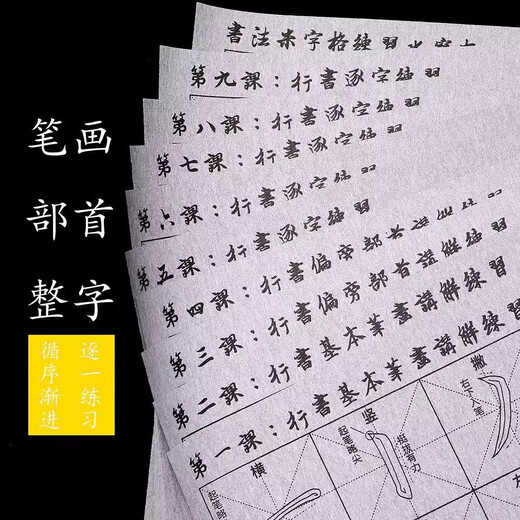 笔画
部首
整字
循序渐进
逐一练习
書法米字格練習
第九課：行書逐字練習
第八課：行書逐字練習
第七課：行書逐字練習
第六課：行書逐字練
第五課：行書逐字練習
第四課：行書偏旁部首講解練習
第三課：行書偏旁部首講解練習
第二課：行書基本筆畫講解練習
第一課：行書基本筆畫講解練習
横
竖
撇
起笔略
起笔略尖
挺拔有力
右下入笔